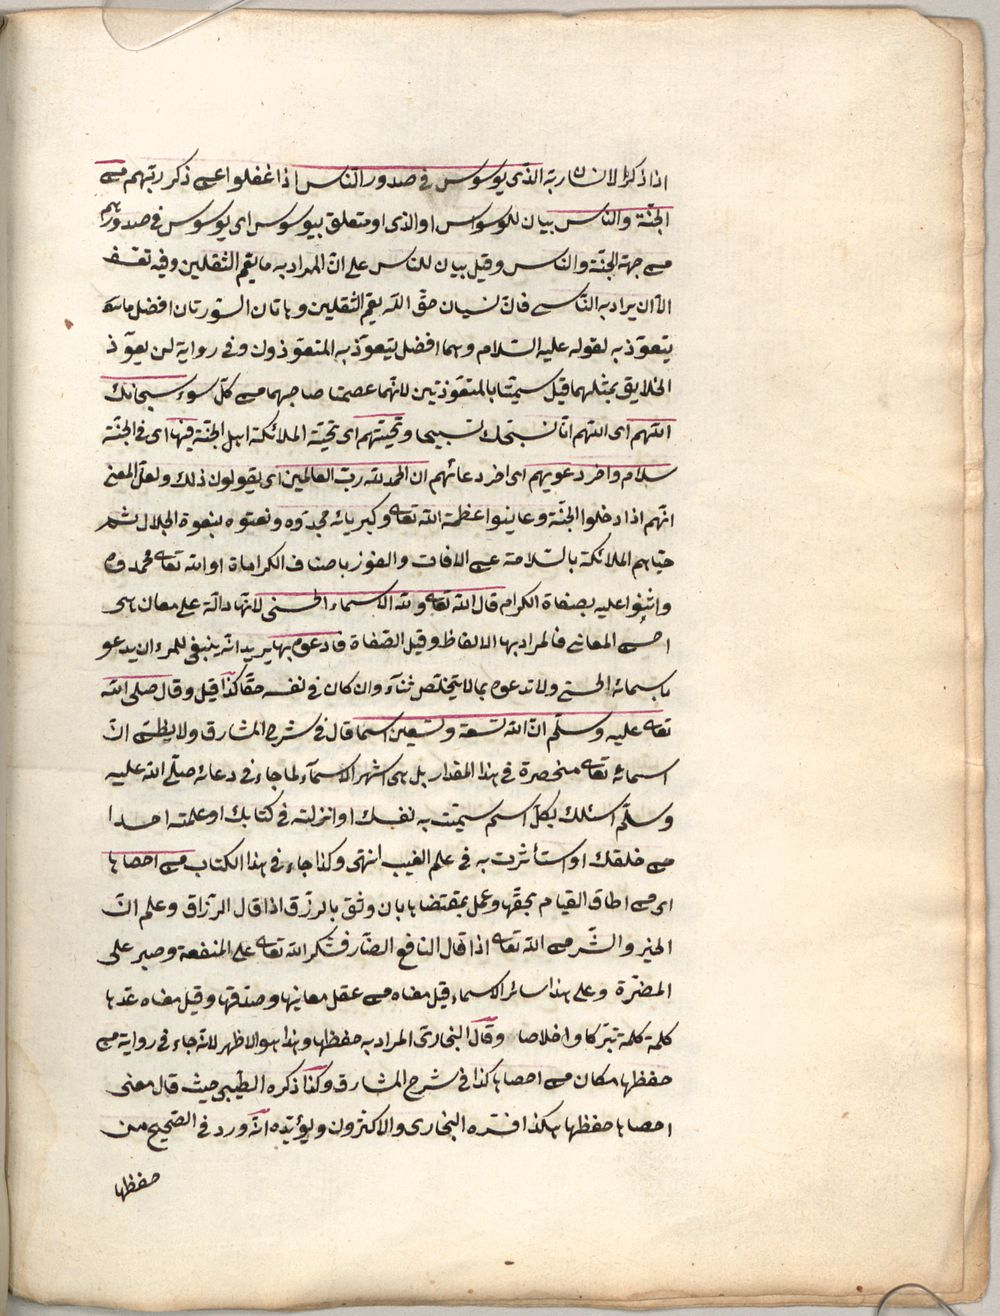 اذا ذكر الانسان ربه الذى يوسوس فى صدور الناس اذا غفلوا عن ذكر ربهم من
الجنّة والناس بيان للوسواس او الذى او متعلق بيوسوس اى يوسوس فى صدورهم
من جهة الجنّة والناس وقيل بيان للناس على انّ المراد به ما يعمّ الثقلين وفيه تعسّف
الا ان يراد به الناسى فانّ نسيان حقّ اللّه يعمّ الثقلين وهاتان السّورتان افضل ما
يتعوّذ به لقوله عليه السّلام وهما افضل يتعوّذ به المتعوّذون وفى رواية لن يعوّذ
الخلايق بمثلهما قيل سمّيتا بالمتعوّذتين لانّهما عصمتا صاحبهما من كلّ سوء سبحانك
اللّهم اى اللّهم انّا نسبّحك تسبيحا وتحيّتهم اى تحيّة الملائكة اهل الجنّة فيها اى فى الجنّة
سلام واخر دعويهم اى اخر دعائهم ان الحمد للّه ربّ العالمين اى يقولون ذلك ولعلّ المعنى
انّهم اذا دخلوا الجنّة وعاينوا عظمة اللّه تعا وكبريائه مجّدوه ونعتوه بنعوة الجلال ثم
حيّاهم الملائكة بالسّلامة عن الافات والفوز باصناف الكراماة او اللّه تعا فحمدوه
واثنوا عليه بصفاة الكرام قال اللّه تعا وللّه الاسماء الحسنى لانّها دالّة على معان هى
احسن المعانى فالمراد بها الالفاظ وقيل الصّفاة فادعوه بها يريد انّه ينبغى للمرء ان يدعو
باسمائه الحسنى ولا تدعوه بما لا يتخلّص ثناء وان كان فى نفسه حقّا كذا قيل وقال صلى اللّه
تعا عليه وسلّم انّ للّه تسعة وتسعين اسما قال فى شرح المشارق ولا يظنّ انّ
اسمائه تعا منحصرة فى هذا المقدار بل هى اشهر الاسمآء لما جاء فى دعائه صلّى اللّه عليه
وسلّم اسئلك بكلّ اسم سمّيت به نفسك او انزلته فى كتابك او علمته احدا
من خلقك او استأثرت به فى علم الغيب انتهى وكذا جاء فى هذا الكتاب من احصاها
اى من اطاق القيام بحقّها وعمل بمقتضاها بان وثق بالرزق اذا قال الرّزاق وعلم انّ
الخير والشّر من اللّه تعا اذا قال النافع الضّار فشكر اللّه تعا على المنفعة وصبر على
المضرّة وعلى هذا سائر الاسماء قيل معناه من عقل معانيها وصدّقها وقيل معناه عدّها
كلمة كلمة تبرّكا واخلاصا وقال البخارى المراد به حفظها وهذا هو الاظهر لانّه جاء فى رواية من
حفظها مكان من احصاها كذا فى شرح المشارق وكذا ذكره الطّيبى حيث قال معنى
احصاها حفظها هكذا فسّره البخارى والاكثرون ويؤيّده انّه ورد فى الصّحيح من
حفظها